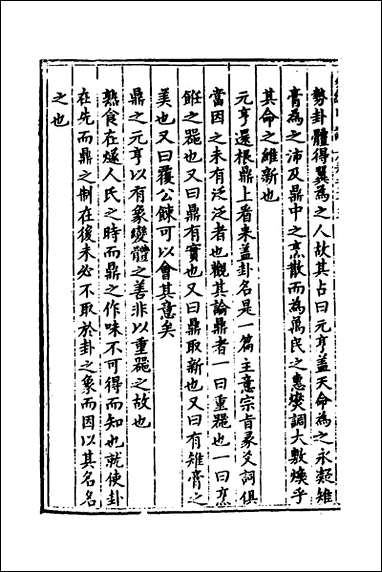 勢卦體得巽為之人故其占曰元亨蓋天命為之永凝雉
膏為之沛及鼎中之烹散而為萬民之惠燮調大敷煥乎
其命之維新也
元亨還根鼎上看來盖卦名是一篇主意宗旨彖爻詞俱
當因之未有泛泛者也觀其論鼎者一曰重器也一曰烹
飪之器也又曰鼎有實也又曰鼎取新也又曰有雉膏之
美也又曰覆公餗可以會其意矣
鼎之元亨以有象變體之善非以重器之故也
熟食在燧人氏之時而鼎之作味不可得而知也就使卦
在先而鼎之制在後未必不取於卦之象而因以其名名
之也